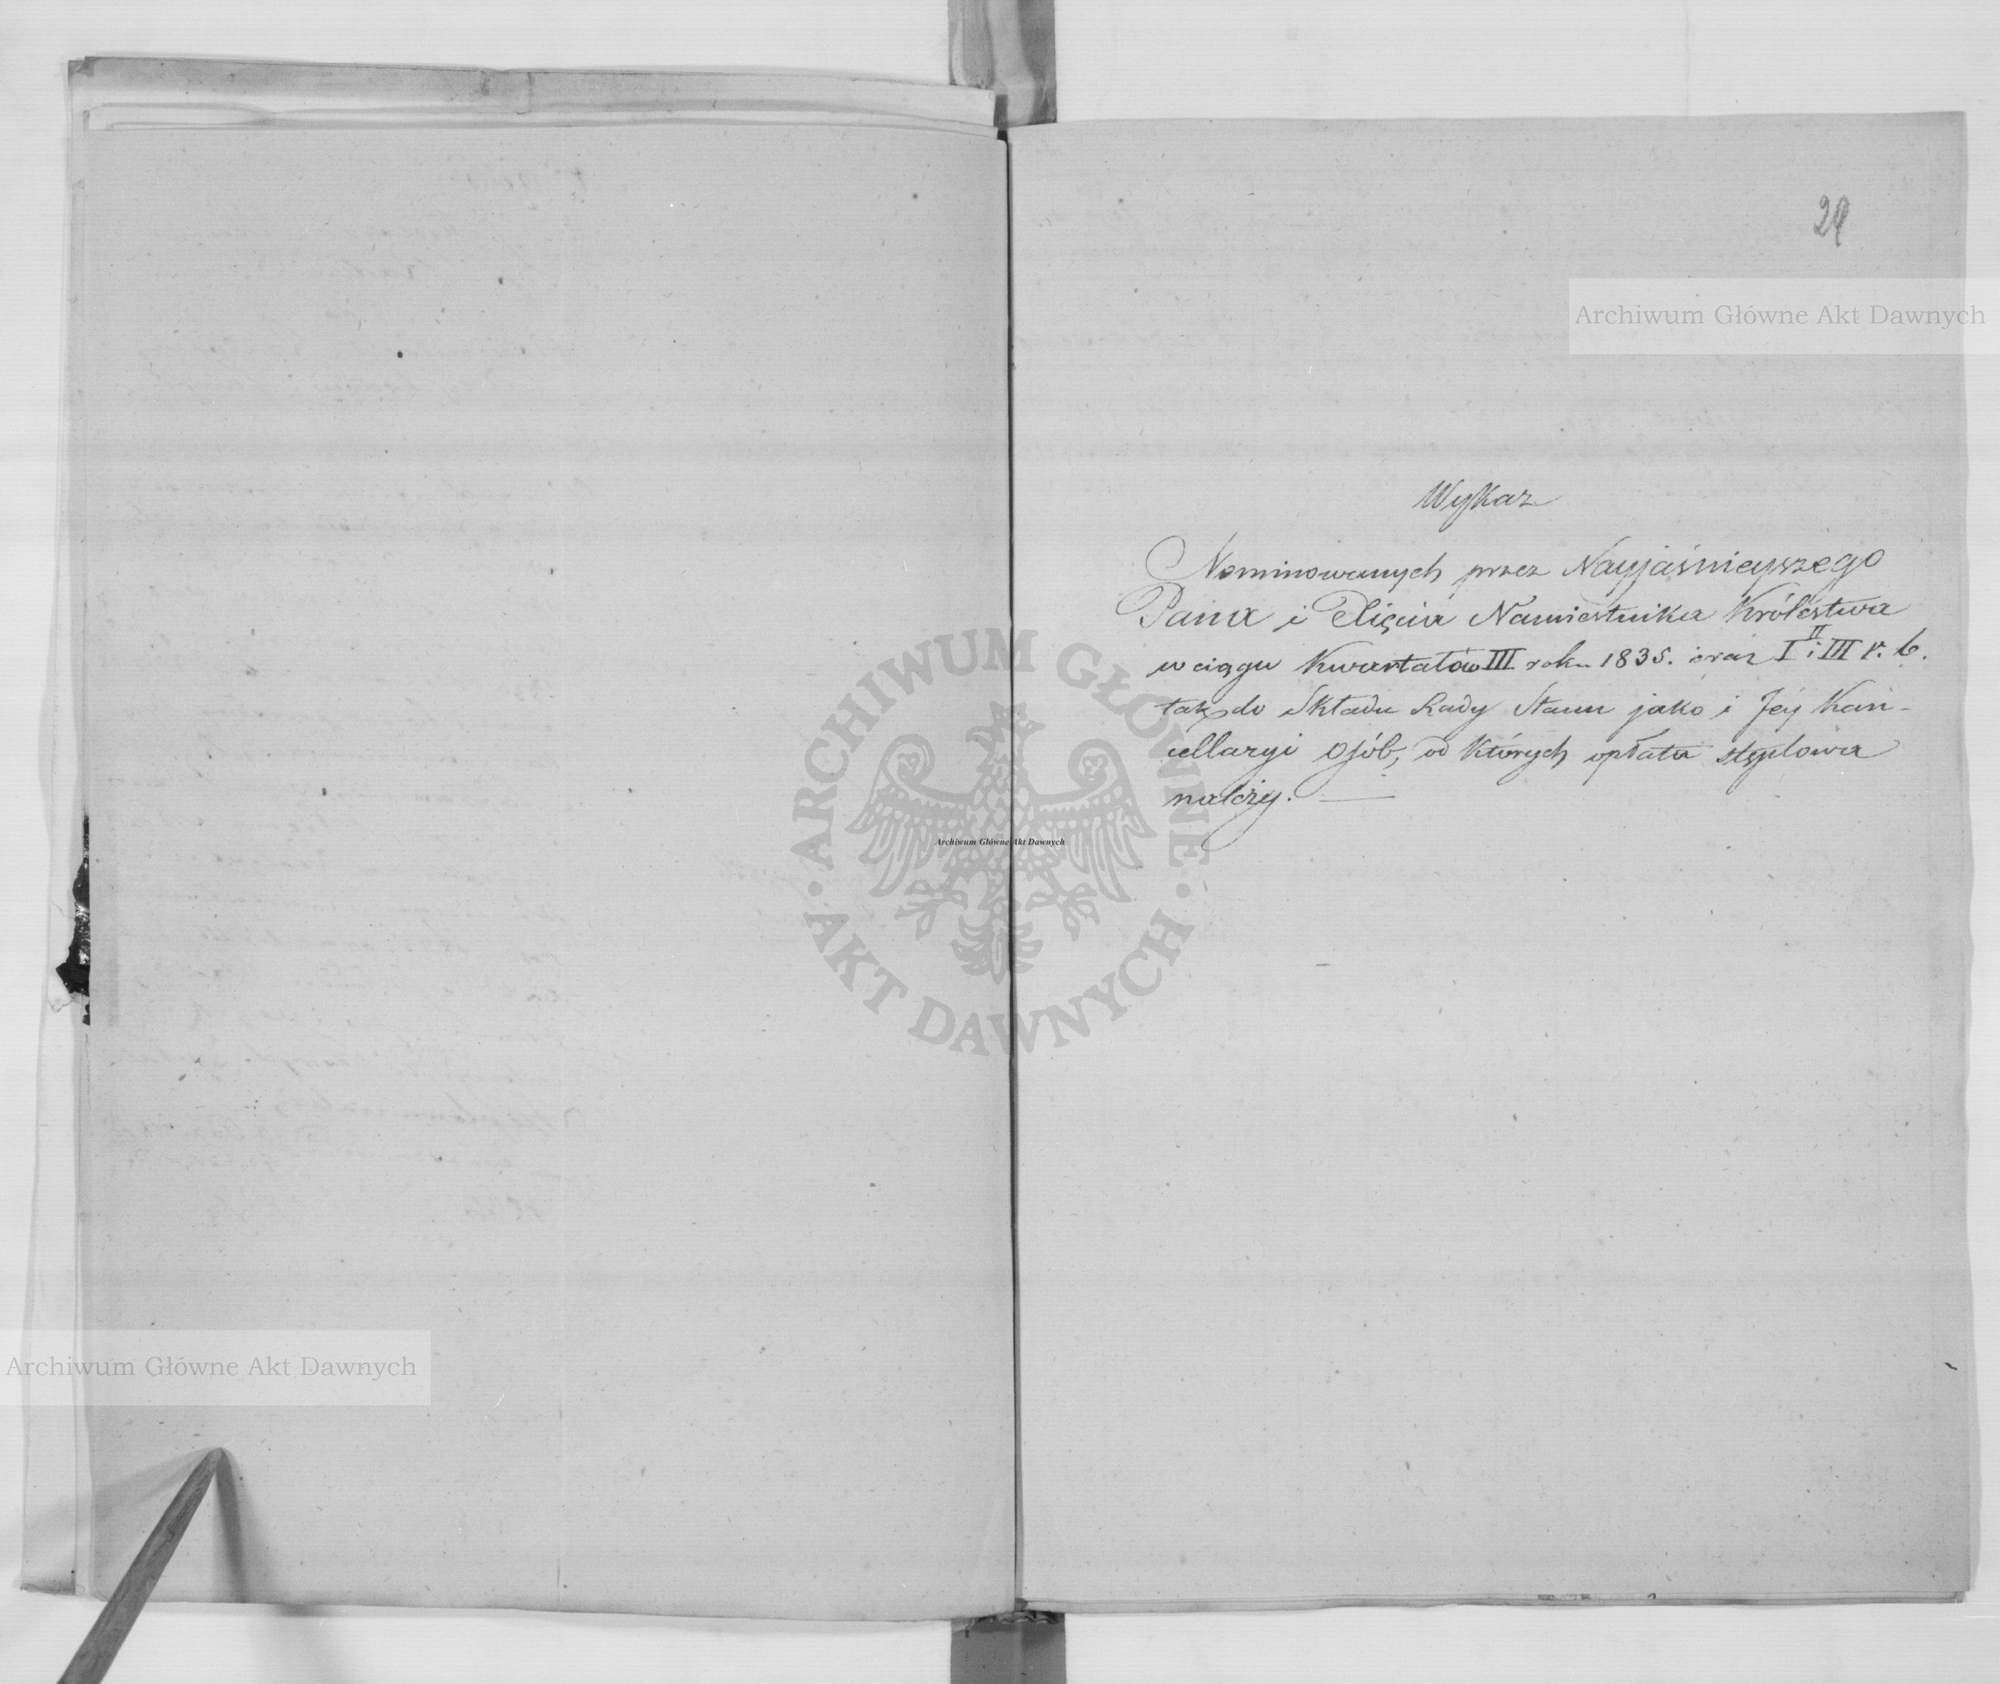 29
Archiwum Główne Akt Dawnych
Wykaz
Nominowanych przez Nayjaśnieyszego
Pana i Xięcia Namiestnika Królestwa
w ciągu Kwartałów III roku 1835. oraz I II i III r. b.
tak do Składu Rady Stanu jako i Jéy Kan-
cellaryi osób, od których opłata stęplowa
należy.
ARCHIWUM GŁÓWNE
AKT DAWNYCH
Archiwum Główne Akt Dawnych
Archiwum Główne Akt Dawnych